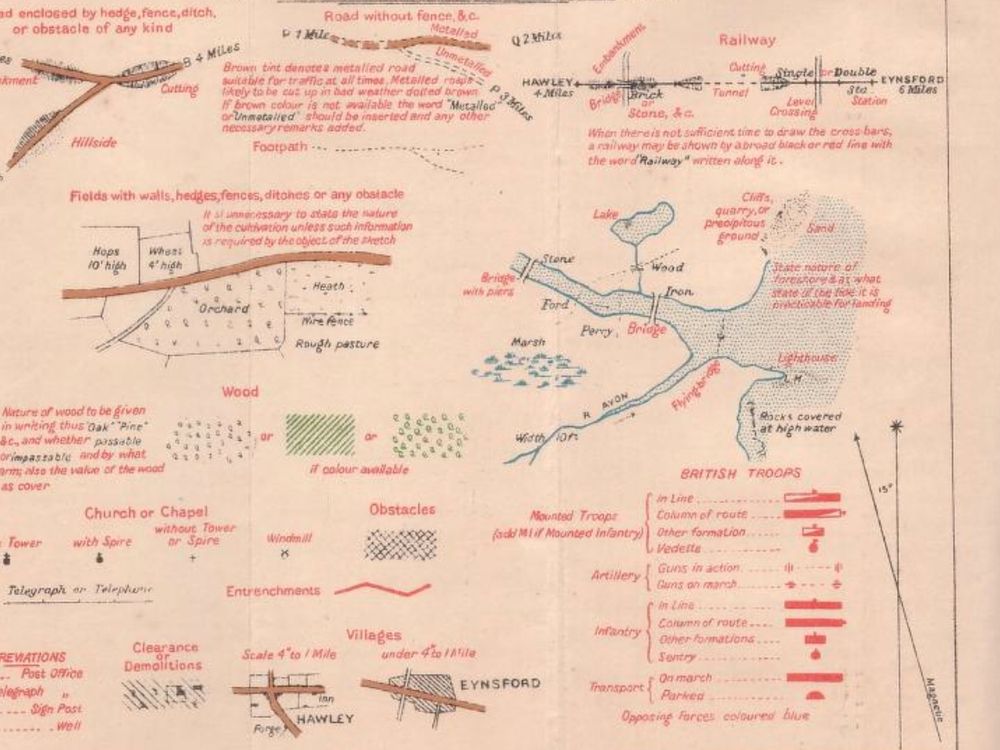 ed enclosed by hedge, fence, ditch,
or obstacle of any kind
B 4 Miles
Cutting
Hillside
Road without fence, &c.
1 Mile
Metalled
Q 2 Miles
Unmetalled
P 3 Miles
Brown tint denotes metalled road
suitable for traffic at all times. Metalled roads
likely to be cut up in bad weather dotted brown.
If brown colour is not available the word "Metalled"
or "Unmetalled" should be inserted and any other
necessary remarks added.
Footpath
Railway
Embankment
Cutting
Single or Double
HAWLEY
4 Miles
EYNSFORD
6 Miles
Bridge
Brick
or
Stone, &c.
Tunnel
Level
Crossing
Sta
Station
When there is not sufficient time to draw the cross bars,
a railway may be shown by a broad black or red line with
the word "Railway" written along it.
Fields with walls, hedges, fences, ditches or any obstacle
It is unnecessary to state the nature
of the cultivation unless such information
is required by the object of the sketch
Hops
10' high
Wheat
4' high
Orchard
Heath
Wire fence
Rough pasture
Lake
Cliffs,
quarry, or
precipitous
ground
Sand
Stone
Wood
Bridge
with piers
Iron
Ford
Ferry
Bridge
State nature of
foreshore & at what
state of the tide it is
practicable for landing
Marsh
Lighthouse
L.H
Flying bridge
R. AVON
Width 10ft
Rocks covered
at high water
Wood
Nature of wood to be given
in writing thus "Oak" "Pine"
&c., and whether passable
or impassable and by what
arm; also the value of the wood
as cover
or
or
if colour available
Church or Chapel
Tower
with Spire
without Tower
or Spire
Windmill
Obstacles
Telegraph or Telephone
Entrenchments
REVIATIONS
Post Office
elegraph "
Sign Post
Well
Clearance
or
Demolitions
Villages
Scale 4" to 1 Mile
under 4" to 1 Mile
Inn
Forge
HAWLEY
EYNSFORD
BRITISH TROOPS
Mounted Troops
(add M I if Mounted Infantry)
In Line
Column of route
Other formation
Vedette
Artillery
Guns in action
Guns on march
Infantry
In Line
Column of route
Other formations
Sentry
Transport
On march
Parked
Opposing forces coloured blue
15°
Magnetic